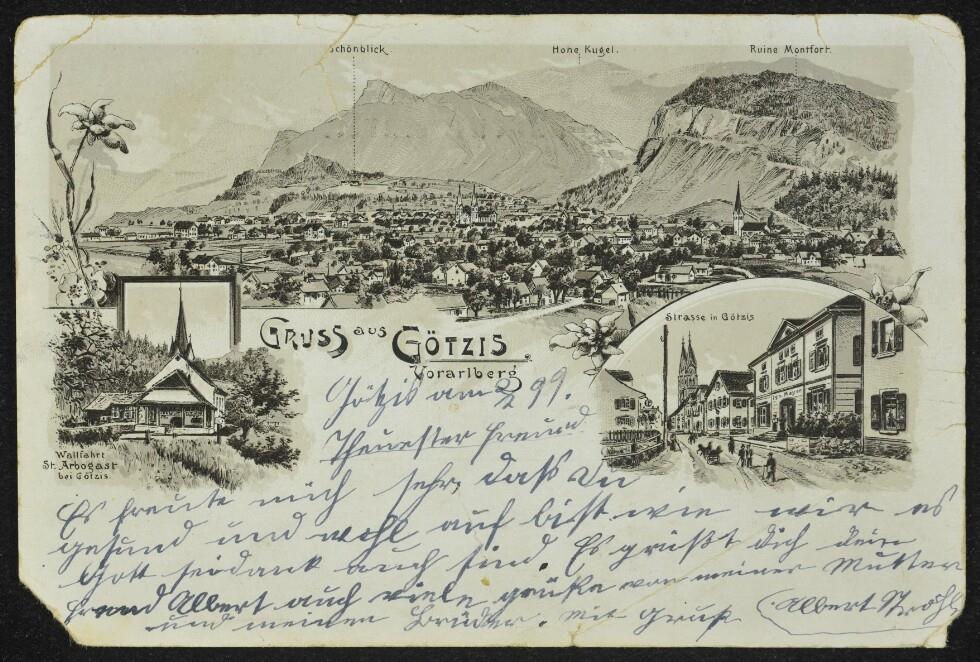 Schönblick.
Hohe Kugel.
Ruine Montfort.
Gruss aus Götzis
Vorarlberg
Strasse in Götzis
Wallfahrt
St. Arbogast
bei Götzis.
Götzis am 99.
Theuester Freund
Es freute mich sehr, dass Du
gesund und wohl auf bist wie wir es
Gott seidank auch sind. Es grüßt dich dein
Freund Albert auch viele grüße von meiner Mutter
und meinen Brüder. mit Gruß
Albert Ströhle